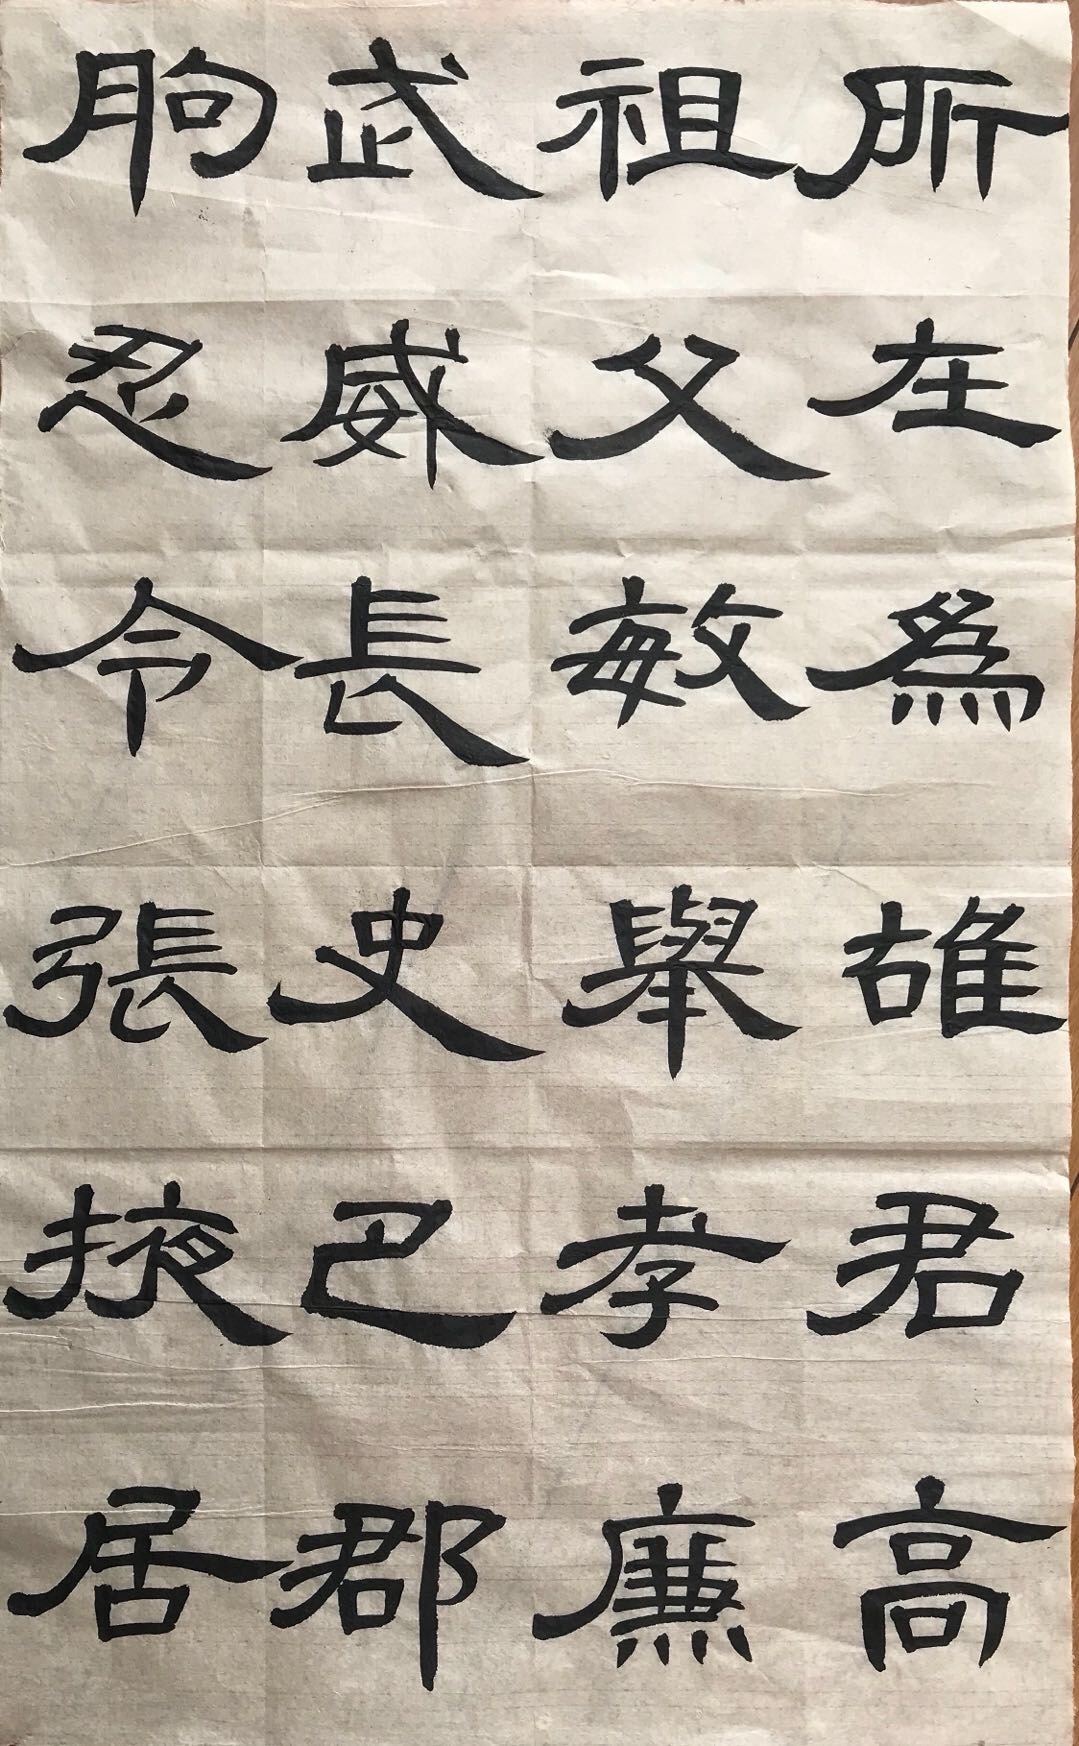 所在為雄君高
祖父敏舉孝廉
武威長史巴郡
朐忍令張掖居